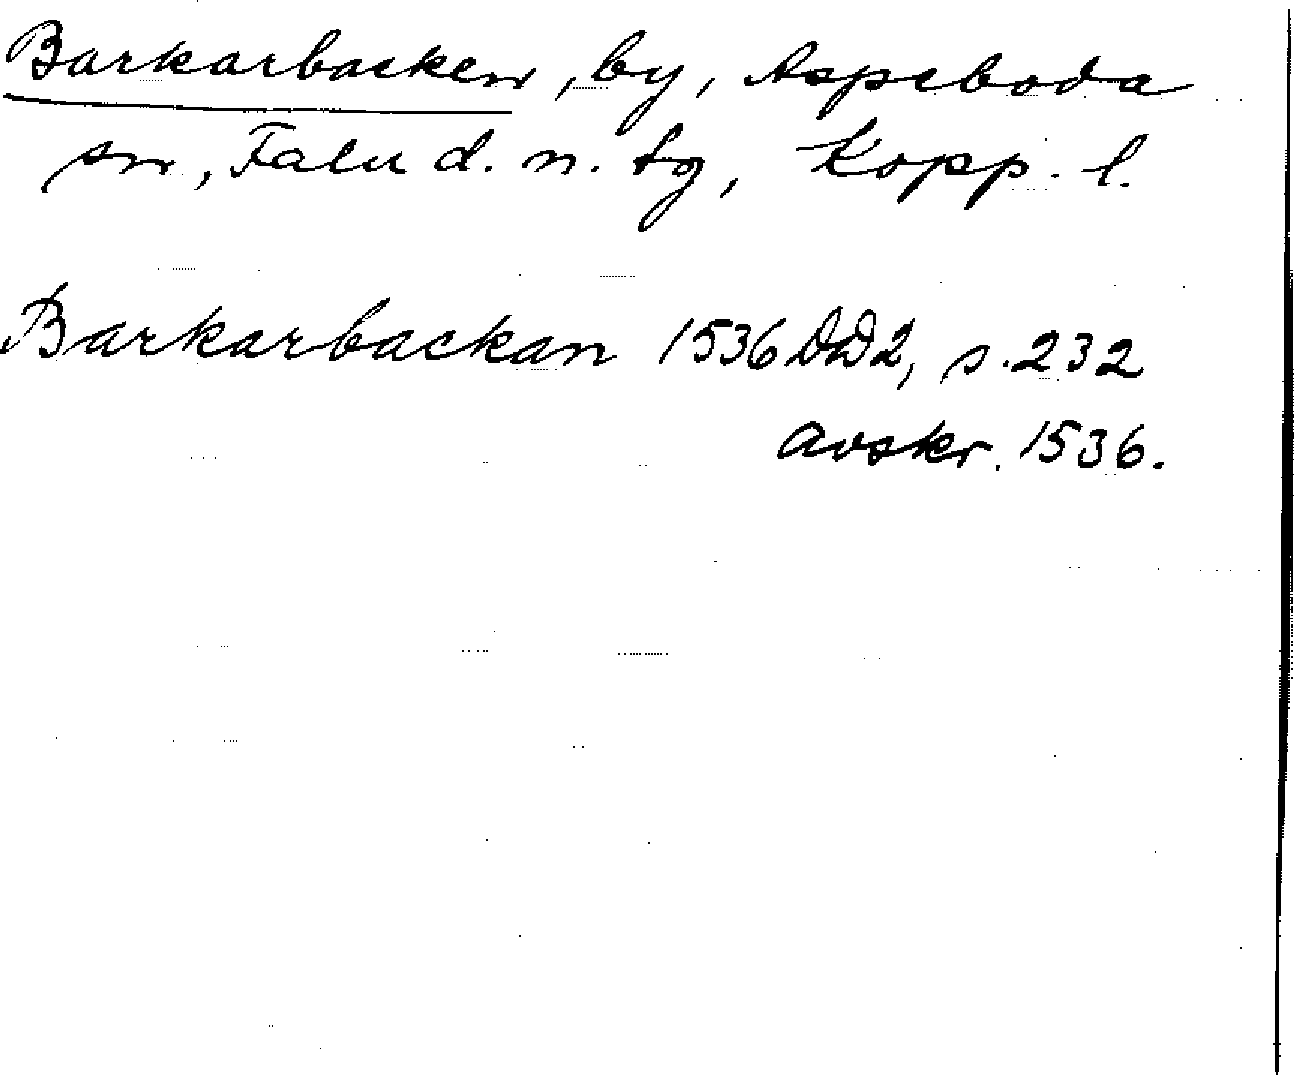 Barkarbacken, by, Aspeboda
sn, Falu d. n. tg, Kopp. l.
Barkarbackan 1536 DD2, s. 232
avskr. 1536.